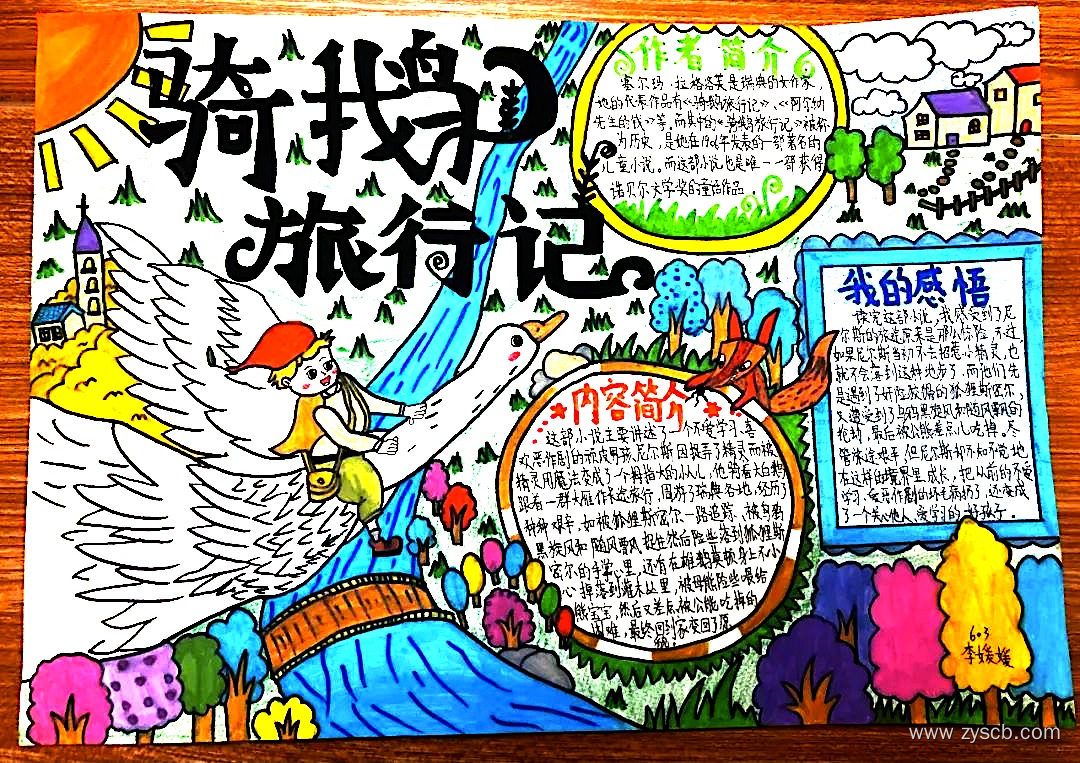 骑鹅
旅行记
作者简介
塞尔玛·拉格洛芙是瑞典的女作家,
她的代表作品有《骑鹅旅行记》,《阿尔纳
先生的钱》等,而其中的《骑鹅旅行记》被称
为历史,是她在19年发表的一部著名的
儿童小说,而这部小说也是唯一一部获得
诺贝尔文学奖的童话作品。
内容简介
这部小说主要讲述了一个不爱学习,喜
欢恶作剧的顽皮男孩,尼尔斯因捉弄了精灵而被
精灵用魔法变成了一个拇指大的小人儿,他骑着大白鹅
跟着一群大雁作长途旅行,周游了瑞典各地,经历了
种种艰辛,如被狐狸斯密尔一路追踪、被乌鸦
黑旋风和随风飘捉去然后险些落到狐狸斯
密尔的手掌里,还有在雄鹅莫顿身上不小
心掉落到灌木丛里,被母熊险些喂给
熊宝宝,然后又差点被公熊吃掉的
困难,最终回到家变回了原
貌。
我的感悟
读完这部小说,我感受到了尼
尔斯的旅途原来是那么惊险,不过,
如果尼尔斯当初不去招惹小精灵,也
就不会落到这种地步了,而他们先
是遇到了奸险狡猾的狐狸斯密尔,
又遭受到了乌鸦黑旋风和随风飘的
抢劫,最后被公熊差点儿吃掉。尽
管旅途艰辛,但尼尔斯却不知不觉地
在这样的境界里成长,把以前的不爱
学习、爱恶作剧的坏毛病扔了,还变成
了一个关心他人、爱学习的好孩子。
603
李媛媛
www zyscb.com